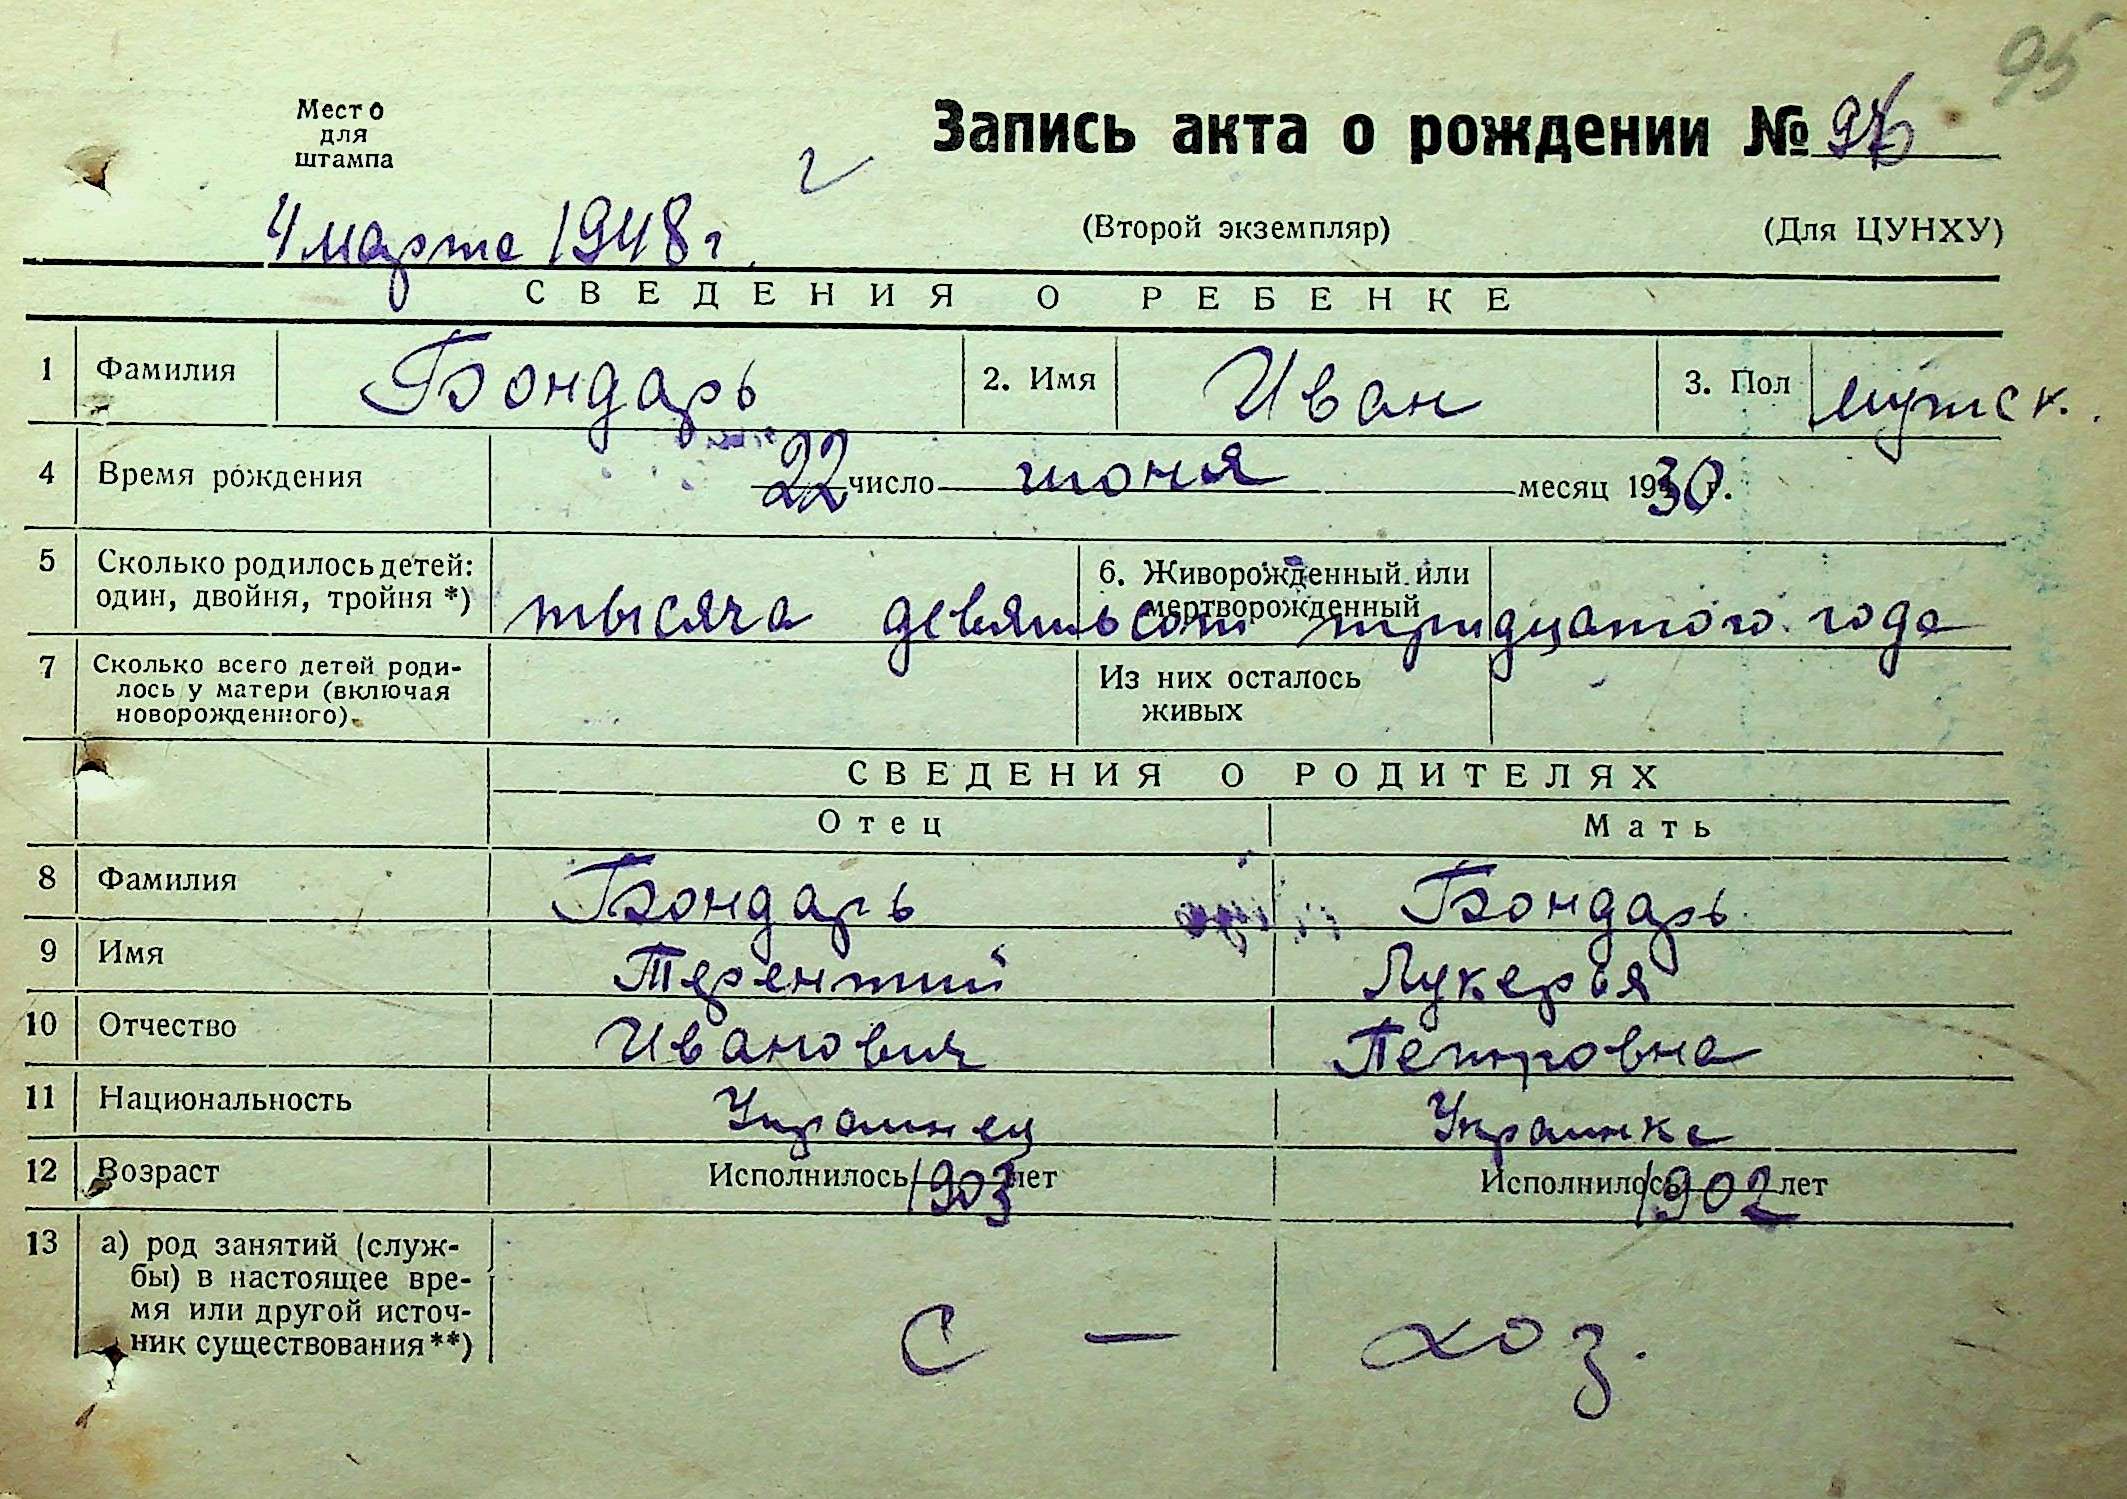 95
Место
для
штампа
Запись акта о рождении №
4 марта 1948 г.
(Второй экземпляр)
(Для ЦУНХУ)
СВЕДЕНИЯ О РЕБЕНКЕ
1 Фамилия Бондарь 2. Имя Иван 3. Пол мужск.
4 Время рождения 22 число июня месяц 1930 г.
5 Сколько родилось детей: 6. Живорожденный или
один, двойня, тройня *) мертворожденный
тысяча девятьсот тридцатого года
7 Сколько всего детей роди- Из них осталось
лось у матери (включая живых
новорожденного).
СВЕДЕНИЯ О РОДИТЕЛЯХ
Отец Мать
8 Фамилия Бондарь Бондарь
9 Имя Терентий Лукерья
10 Отчество Иванович Петровна
11 Национальность Украинец Украинка
12 Возраст Исполнилось 1903 лет Исполнилось 1902 лет
13 а) род занятий (служ-
бы) в настоящее вре-
мя или другой источ-
ник существования**)
с - хоз.